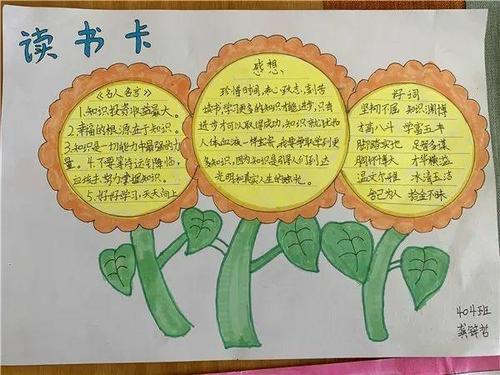 读书卡
《名人名言》
1.知识投资收益最大。
2.幸福的根源在于知识。
3.知识是一切能力中最强的力
量。4.不要等待运气降临，
应该去努力掌握知识。
5.好好学习，天天向上
感想
珍惜时间，决心，执志，刻苦
读书，学习更多的知识才能进步，只有
进步才可以取得成功，知识就犹如
人体血液一样宝贵，我要争取学到更
多知识，因为知识是引导人们到达
光明和真实人生的烛光。
好词
坚韧不屈 知识渊博
才高八斗 学富五车
脚踏实地 足智多谋
胸怀博大 才华横溢
温文尔雅 冰清玉洁
舍己为人 拾金不昧
404班
龚